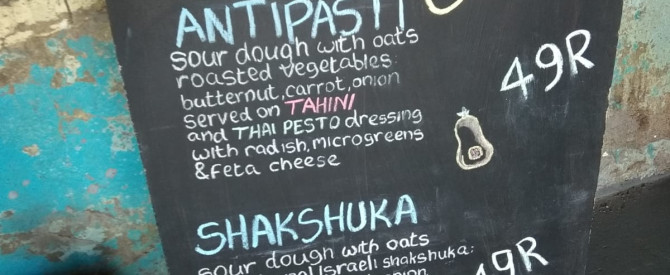 ANTIPASTI
sour dough with oats
roasted vegetables:
butternut, carrot, onion
served on TAHINI
and THAI PESTO dressing
with radish, microgreens
& feta cheese
49R
SHAKSHUKA
sour dough with oats
Israeli shakshuka:
onion
49R